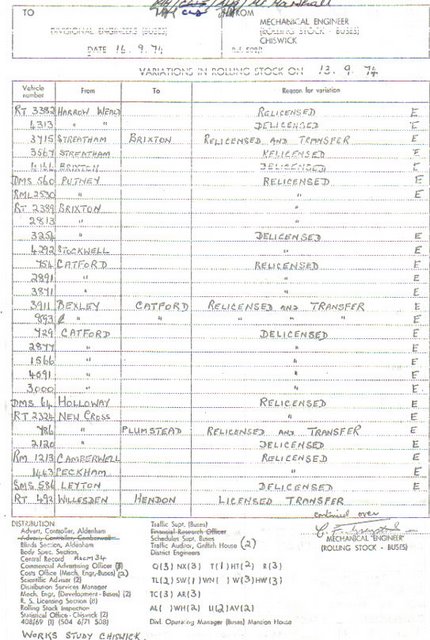 TO
FROM
DIVISIONAL ENGINEERS (BUSES)
MECHANICAL ENGINEER
(ROLLING STOCK - BUSES)
CHISWICK
DATE 16.9.74
VARIATIONS IN ROLLING STOCK ON 12.9.74
Vehicle number From To Reason for variation
RT 3382 HARROW WEALD RELICENSED E
4313 " " DELICENSED E
3715 STREATHAM BRIXTON RELICENSED AND TRANSFER E
3567 STREATHAM RELICENSED E
BRIXTON DELICENSED E
DMS 560 PUTNEY RELICENSED E
RML 2530 " " E
RT 2389 BRIXTON "
2813 " "
3254 " DELICENSED E
4292 STOCKWELL " E
754 CATFORD RELICENSED E
2891 " " E
3871 " " E
3911 BEXLEY CATFORD RELICENSED AND TRANSFER E
893 " " " " " E
729 CATFORD DELICENSED E
2877 " " E
1566 " " E
4091 " " E
3000 " " E
DMS 64 HOLLOWAY RELICENSED E
RT 2324 NEW CROSS " E
786 " PLUMSTEAD RELICENSED AND TRANSFER E
2120 " DELICENSED E
RM 1213 CAMBERWELL RELICENSED E
1463 PECKHAM " E
SMS 586 LEYTON DELICENSED E
RT 492 WILLESDEN HENDON LICENSED TRANSFER E
continued over
MECHANICAL ENGINEER
(ROLLING STOCK - BUSES)
DISTRIBUTION
Advert, Controller, Aldenham
Advert, Controller
Blinds Section, Aldenham
Body Spec, Section,
Central Record Room 34
Commercial Advertising Officer
Costs Office (Mech. Engr, Buses) (2)
Scientific Adviser (2)
Distribution Services Manager
Mech. Engr, (Development - Buses) (2)
R. S. Licensing
Rolling Stock Inspection
Statistical Office - Chiswick (2)
408/69 (1) (504 6/71 508)
Traffic Supt. (Buses)
Financial Research Officer
Schedules Supt. Buses
Traffic Auditor, Griffith House (2)
District Engineers
Q(3) NX(3) T( ) HT(2) R(3)
TL(2) SW( ) WN( ) W(3) HW(3)
TC(3) AR(3)
AL( ) WH(2) U(2) AV(2)
Divl. Operating Manager (Buses) Mansion House
WORKS STUDY CHISWICK.